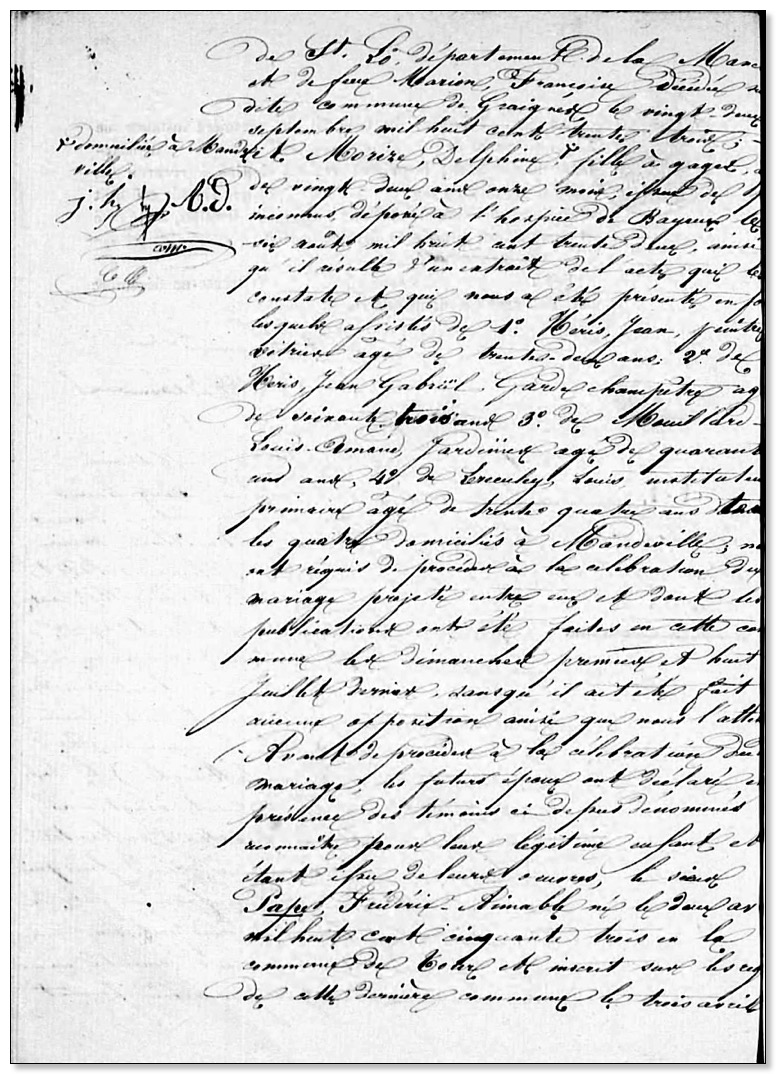 de St. Lô, département de la Manc
et de feue Marion, Françoise, décédée
dite commune de Graignes le vingt deux
septembre mil huit cent trente trois;
+ domiciliée à Mande
ville.
j. h. A. D.
et Morize, Delphine + fille à gages,
de vingt-deux ans onze mois, issue de
inconnus, déposée à l'hospice de Bayeux le
six août mil huit cent trente deux, ainsi
qu'il résulte d'un extrait de l'acte qui le
constate et qui nous a été présenté en fo
lesquels assistés de 1º. Héris, Jean, peintre
vitrier âgé de trente-deux ans; 2º. de
Heris, Jean Gabriel, Garde champêtre ag
de soixante trois ans 3º. de Mouillard
Louis-Amand, Jardinier âgé de quarant
ans, 4º. de Lecauley, Louis, instituteur
primaire âgé de trente quatre ans tous
les quatre domiciliés à Mandeville, n
ont réquis de procéder à la célébration du
mariage projeté entre eux et dont les
publications ont été faites en cette com
mune les dimanches premier et huit
Juillet dernier, sans qu'il ait été fait
aucune opposition ainsi que nous l'attes
Avant de procéder à la célébration du
mariage, les futurs époux ont déclaré en
présence des témoins ci depuis dénommés
reconnaître pour leur légitime enfant et
étant issu de leurs œuvres, le sieur
Pape, Frédéric-Aimable né le deux av
mil huit cent cinquante trois en la
commune de Tour et inscrit sur les reg
de cette dernière commune le trois avril